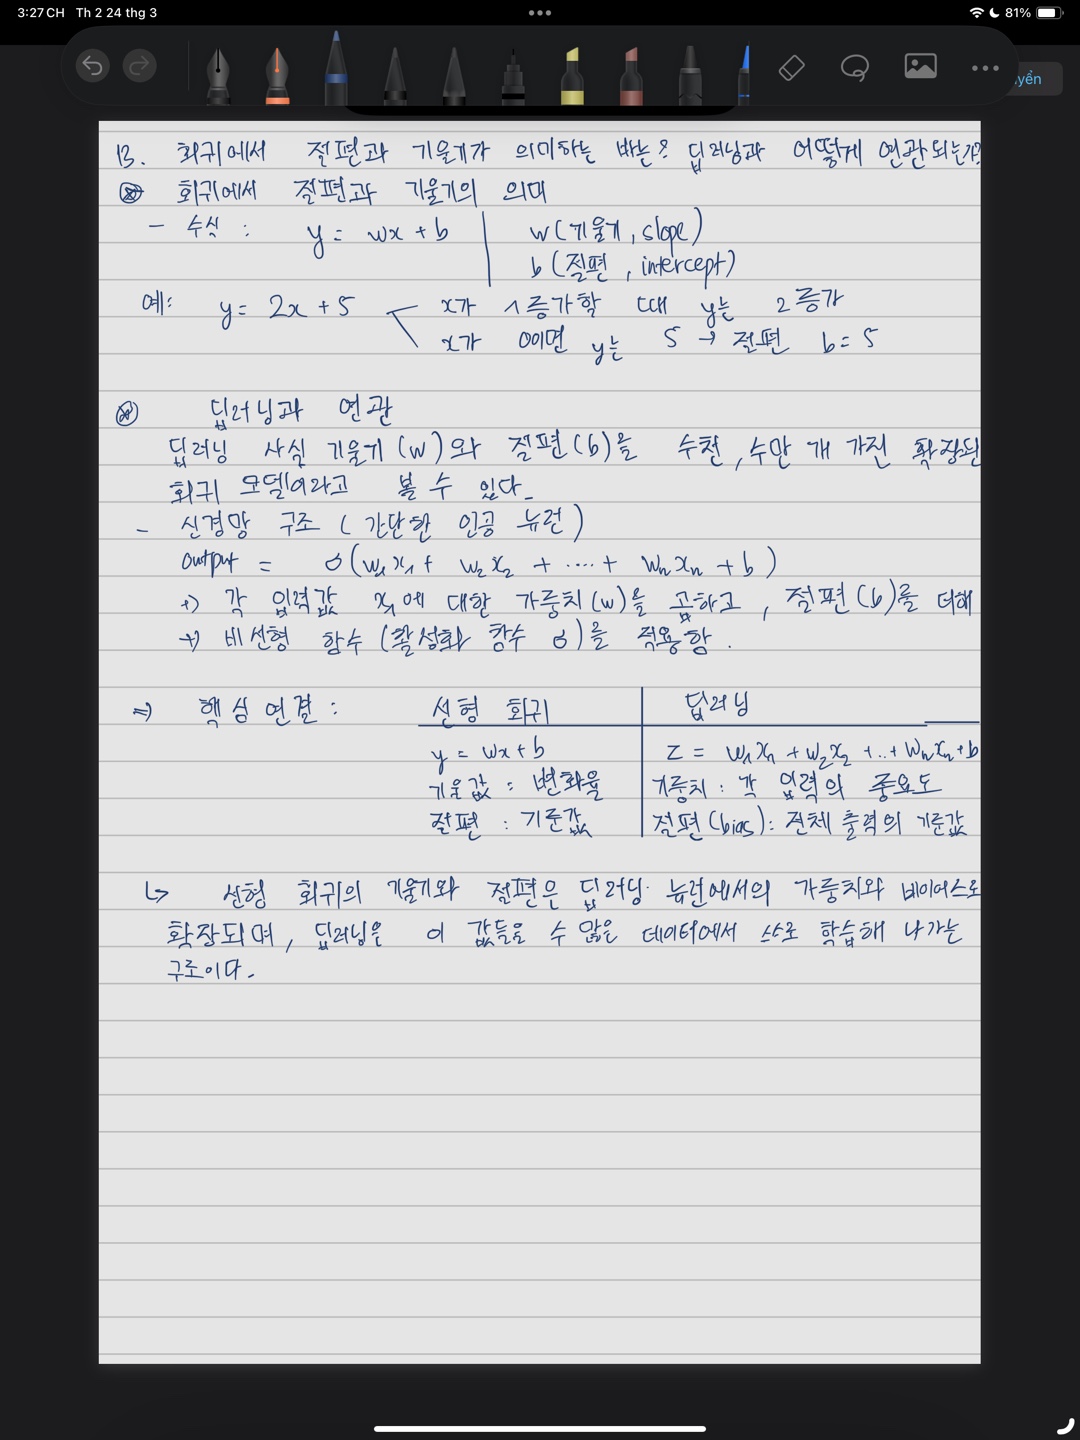 3:27 CH Th 2 24 thg 3 81%
yển
13. 회귀에서 절편과 기울기가 의미하는 바는? 딥러닝과 어떻게 연관되는가?
회귀에서 절편과 기울기의 의미
- 수식 : y = wx + b w (기울기, slope)
b (절편, intercept)
예: y = 2x + 5 x가 1 증가할 때 y는 2 증가
x가 0이면 y는 5 → 절편 b = 5
딥러닝과 연관
딥러닝 사실 기울기 (w)와 절편(b)을 수천, 수만 개 가진 확장된
회귀 모델이라고 볼 수 있다.
- 신경망 구조 ( 간단한 인공 뉴런 )
output = σ(w₁x₁ + w₂x₂ + ..... + wₙxₙ + b)
+) 각 입력값 x₁에 대한 가중치(w)을 곱하고, 절편(b)를 더해
+) 비선형 함수 (활성화 함수 σ)을 적용함.
⇒ 핵심 연결 : 선형 회귀 딥러닝
y = wx + b z = w₁x₁ + w₂x₂ + ..+ wₙxₙ + b
기울값 : 변화율 가중치 : 각 입력의 중요도
절편 : 기준값 절편(bias): 전체 출력의 기준값
↳ 선형 회귀의 기울기와 절편은 딥러닝 뉴런에서의 가중치와 바이어스로
확장되며, 딥러닝은 이 값들을 수 많은 데이터에서 스스로 학습해 나가는
구조이다.